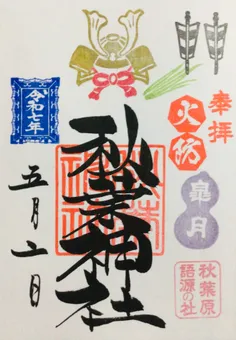 奉拝
火防
皐月
秋葉原
語源の社
秋葉神社
令和七年
五月二日